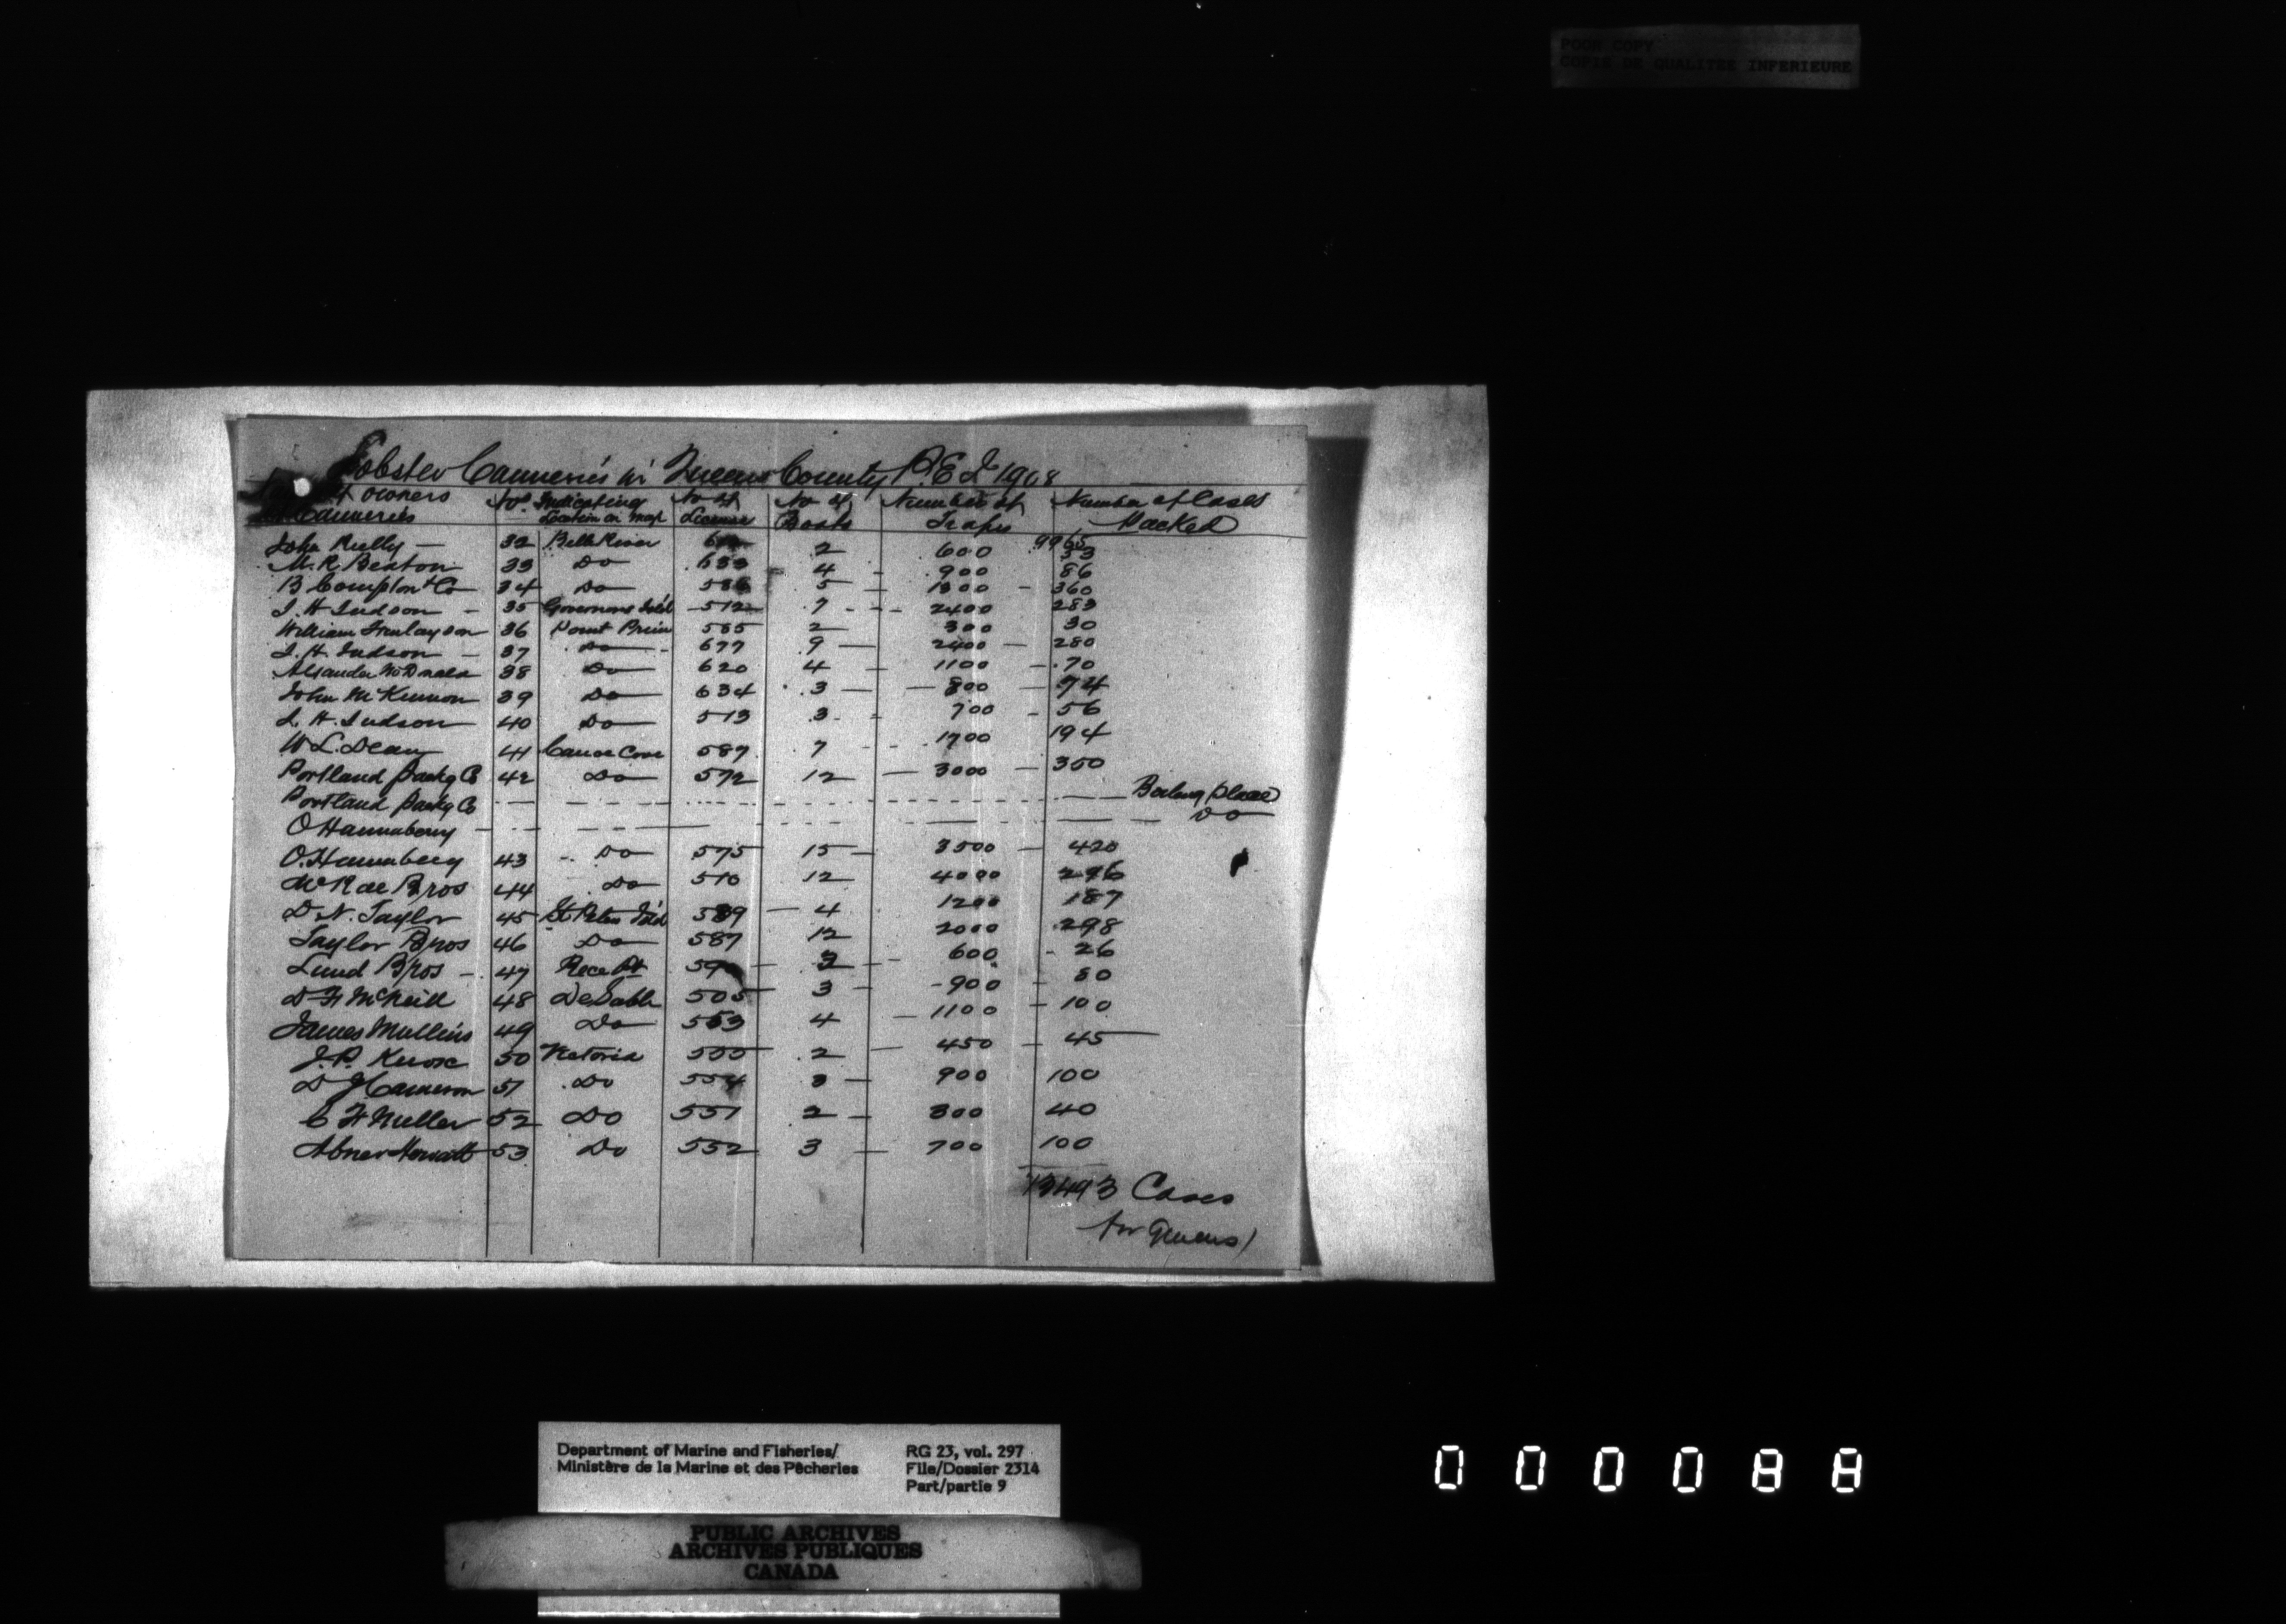 POOR COPY
COPIE DE QUALITEE INFERIEURE
Lobster Canneries in Queens County P.E.I 1908
owners Canneries | No. Indicating Location on Map | No of License | No of Boats | Number of Traps | Number of Cases Packed
9965
John Reilly — 32 Belle River 2 600 33
M. R. Beaton 33 Do 633 4 - 900 86
B Compton & Co 34 Do 586 5 - 1300 - 360
J. H. Judson - 35 Governors Isl'd 512 7 - - - 2400 283
William Finlayson 36 Point Prim 585 2 300 30
J. H. Judson - 37 Do - 677 9 — 2400 — 280
Alexander McDonald 38 Do 620 4 - 1100 - 70
John McKinnon 39 Do 634 3 — — 800 — 74
J. H. Judson 40 Do 513 3 - - 700 - 56
W L. Dean 41 Canoe Cove 587 7 - - 1700 194
Portland Packg Co 42 Do 572 12 — 3000 — 350
Portland Packg Co — Boiling place
O Hannabery — Do
O. Hannabery 43 - Do 575 15 — 3500 — 420
McRae Bros 44 Do 510 12 4000 296
D. N. Taylor 45 St Peters Isl'd 589 — 4 1200 187
Taylor Bros 46 Do 587 12 2000 298
Lund Bros - 47 Rice Pt — 3 - 600 - 26
D F McNeill 48 DeSable 505 3 - 900 - 80
James Mullins 49 Do 553 4 — 1100 - 100
J. P. 50 Victoria 555 2 — 450 - 45
D J Cameron 51 Do 554 3 — 900 100
C F Miller 52 Do 551 2 — 300 40
Abner Howatt 53 Do 552 3 — 700 100
13493 Cases
for Queens
Department of Marine and Fisheries/
Ministère de la Marine et des Pêcheries
RG 23, vol. 297
File/Dossier 2314
Part/partie 9
000088
PUBLIC ARCHIVES
ARCHIVES PUBLIQUES
CANADA